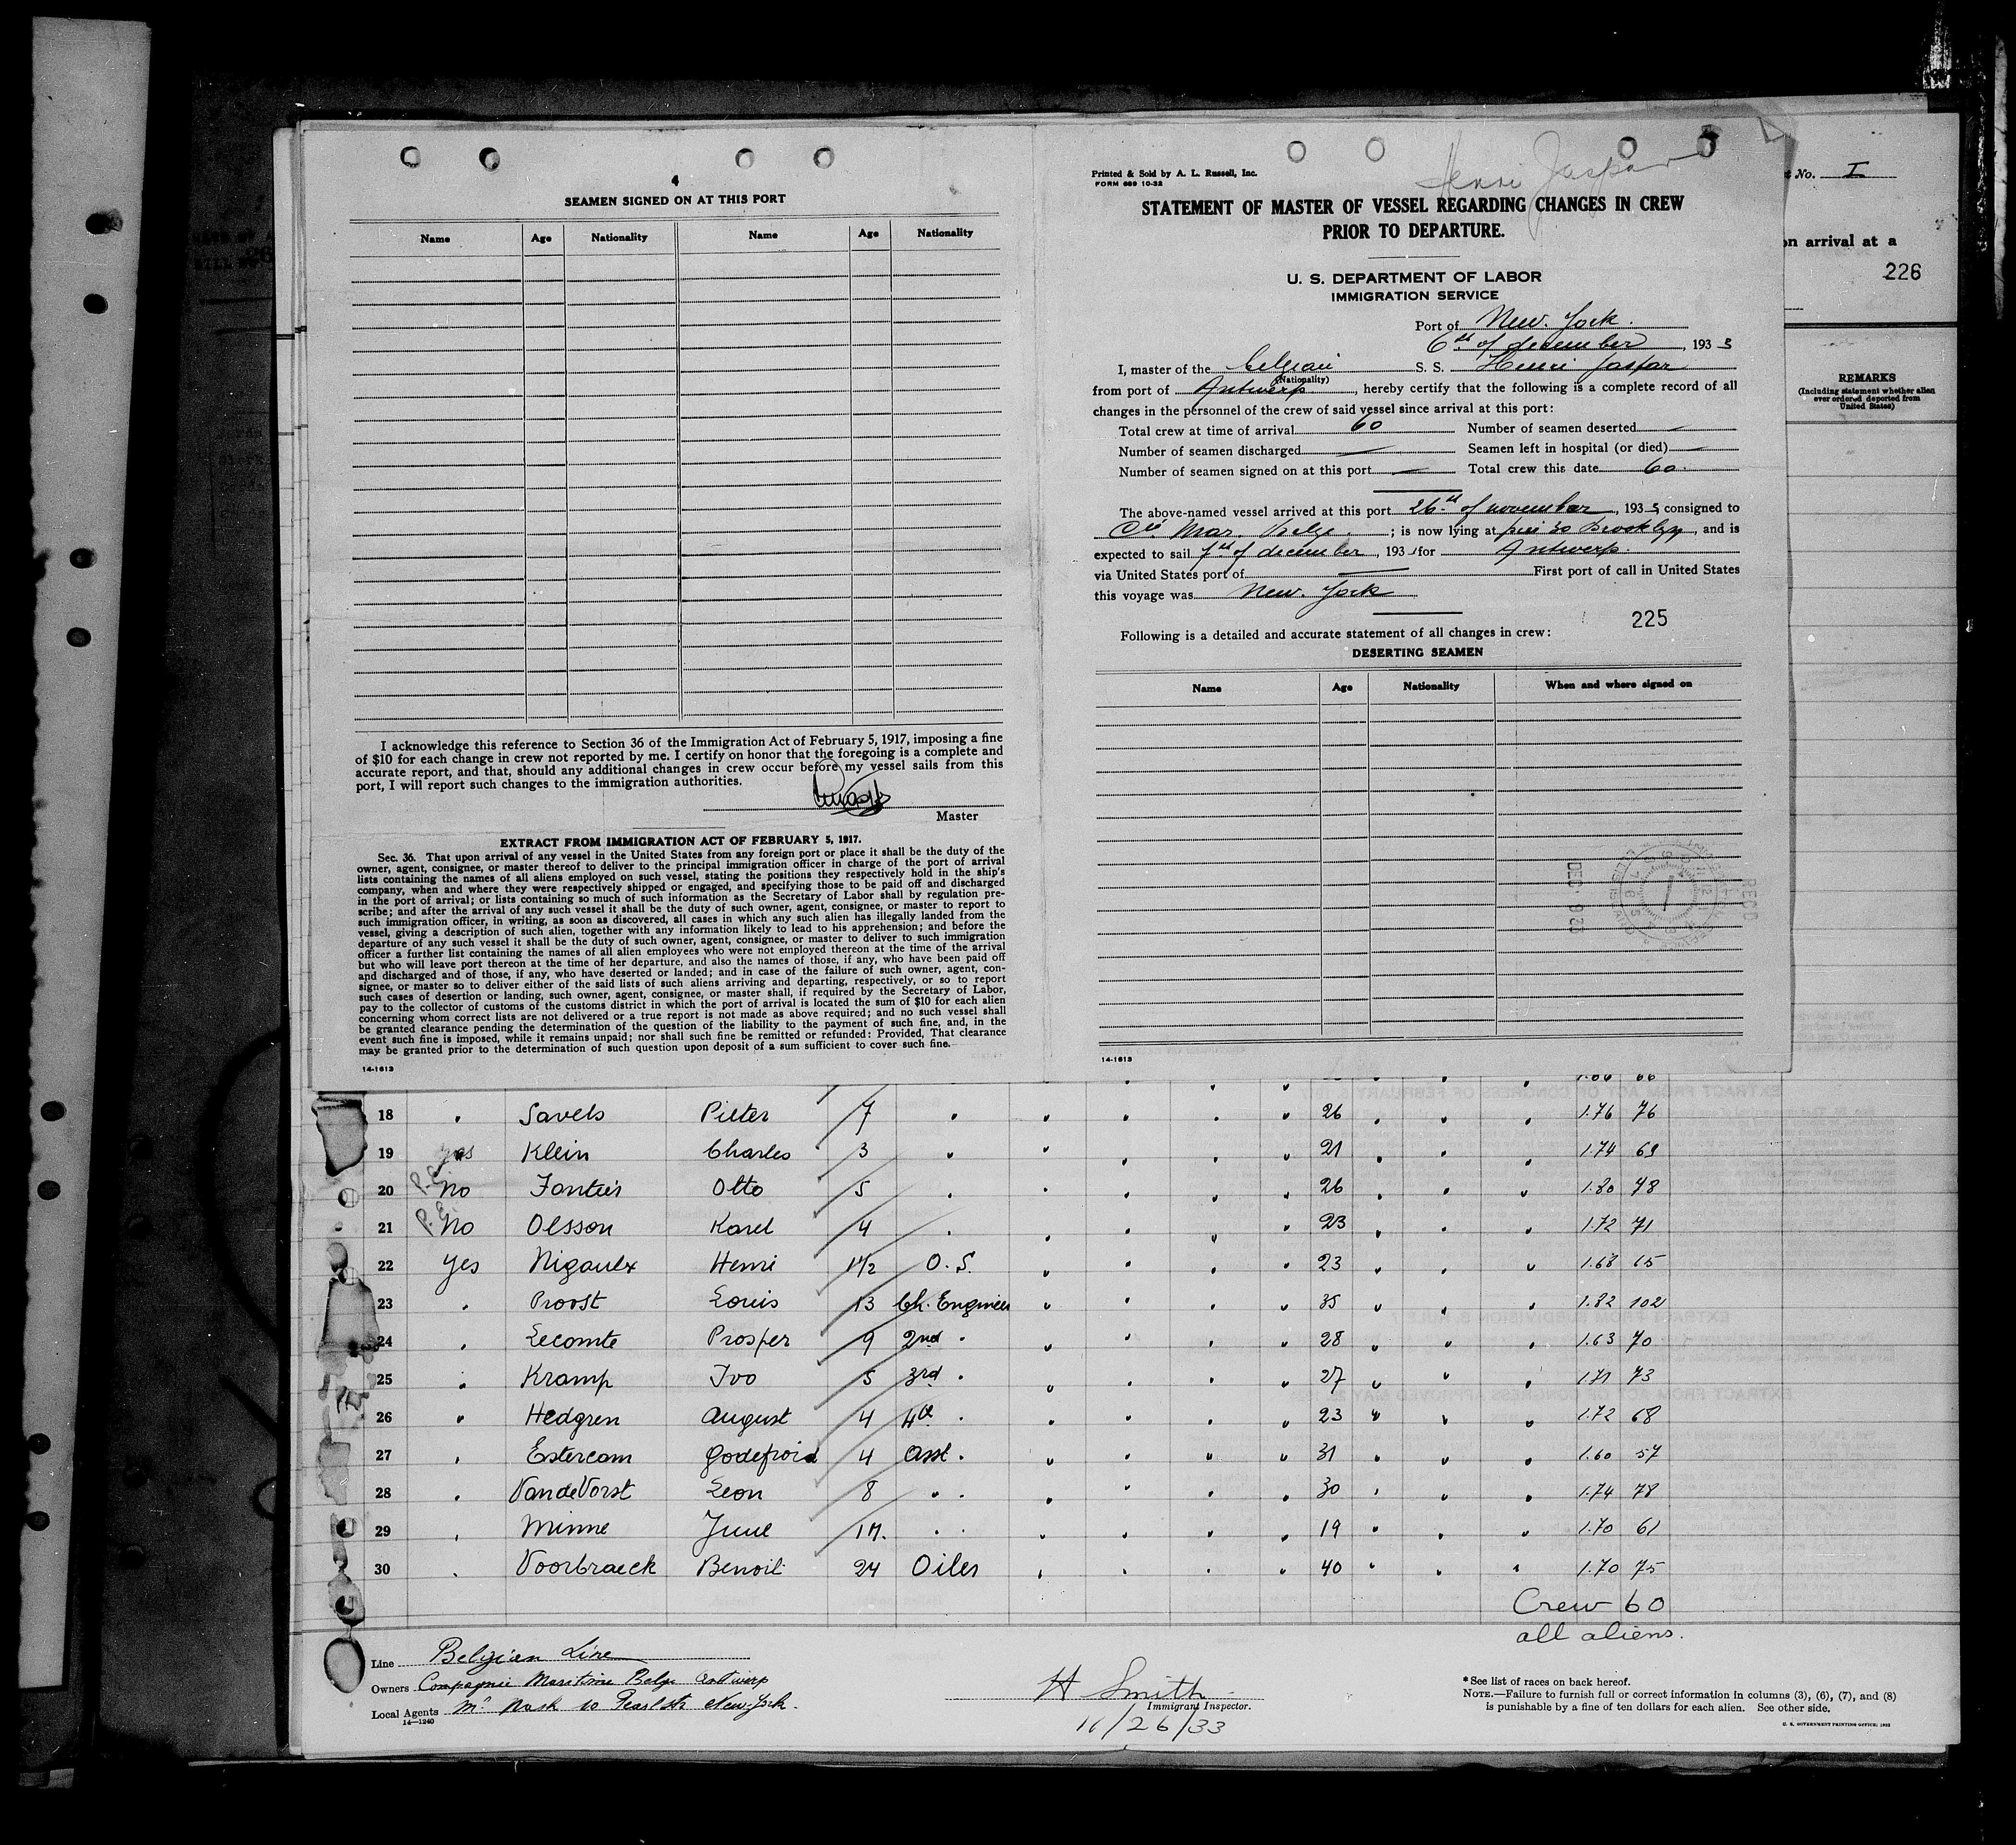 4
SEAMEN SIGNED ON AT THIS PORT
Name Age Nationality Name Age Nationality
I acknowledge this reference to Section 36 of the Immigration Act of February 5, 1917, imposing a fine
of $10 for each change in crew not reported by me. I certify on honor that the foregoing is a complete and
accurate report, and that, should any additional changes in crew occur before my vessel sails from this
port, I will report such changes to the immigration authorities.
Master
EXTRACT FROM IMMIGRATION ACT OF FEBRUARY 5, 1917.
Sec. 36. That upon arrival of any vessel in the United States from any foreign port or place it shall be the duty of the
owner, agent, consignee, or master thereof to deliver to the principal immigration officer in charge of the port of arrival
lists containing the names of all aliens employed on such vessel, stating the positions they respectively hold in the ship's
company, when and where they were respectively shipped or engaged, and specifying those to be paid off and discharged
in the port of arrival; or lists containing so much of such information as the Secretary of Labor shall by regulation pre-
scribe; and after the arrival of any such vessel it shall be the duty of such owner, agent, consignee, or master to report to
such immigration officer, in writing, as soon as discovered, all cases in which any such alien has illegally landed from the
vessel, giving a description of such alien, together with any information likely to lead to his apprehension; and before the
departure of any such vessel it shall be the duty of such owner, agent, consignee, or master to deliver to such immigration
officer a further list containing the names of all alien employees who were not employed thereon at the time of the arrival
but who will leave port thereon at the time of her departure, and also the names of those, if any, who have been paid off
and discharged and of those, if any, who have deserted or landed; and in case of the failure of such owner, agent, con-
signee, or master so to deliver either of the said lists of such aliens arriving and departing, respectively, or so to report
such cases of desertion or landing, such owner, agent, consignee, or master shall, if required by the Secretary of Labor,
pay to the collector of customs of the customs district in which the port of arrival is located the sum of $10 for each alien
concerning whom correct lists are not delivered or a true report is not made as above required; and no such vessel shall
be granted clearance pending the determination of the question of the liability to the payment of such fine, and, in the
event such fine is imposed, while it remains unpaid; nor shall such fine be remitted or refunded: Provided, That clearance
may be granted prior to the determination of such question upon deposit of a sum sufficient to cover such fine.
14-1613
Printed & Sold by A. L. Russell, Inc.
FORM 689 10-32
Henri Jaspar
STATEMENT OF MASTER OF VESSEL REGARDING CHANGES IN CREW
PRIOR TO DEPARTURE.
U. S. DEPARTMENT OF LABOR
IMMIGRATION SERVICE
Port of New-York.
6th of december, 1933
I, master of the belgian S. S. Henri Jaspar
(Nationality)
from port of Antwerp, hereby certify that the following is a complete record of all
changes in the personnel of the crew of said vessel since arrival at this port:
Total crew at time of arrival 60 Number of seamen deserted —
Number of seamen discharged — Seamen left in hospital (or died) —
Number of seamen signed on at this port — Total crew this date 60.
The above-named vessel arrived at this port 26th of november, 1933 consigned to
Cie Mar. Belge.; is now lying at pier 30 Brooklyn, and is
expected to sail 7th of december, 193 for Antwerp.
via United States port of — First port of call in United States
this voyage was New-York
225
Following is a detailed and accurate statement of all changes in crew:
DESERTING SEAMEN
Name Age Nationality When and where signed on
DEC 9 33
RECD
14-1613
t No. I
on arrival at a
226
REMARKS
(Including statement whether alien
ever ordered deported from
United States)
1.66 66
18 " Savels Pieter 7 " " " " " 26 " " " 1.76 76
19 yes Klein Charles 3 " " " " " 21 " " " 1.74 69
20 P.E. no Otto 5 " " " " " 26 " " " 1.80 78
21 P.E. no Olsson Karel 4 " " " " " 23 " " " 1.72 71
22 yes Nigaulx Henri 1 1/2 O.S. " " " " 23 " " " 1.68 65
23 " Proost Louis 13 Ch. Engineer " " " " 35 " " " 1.82 102
24 " Lecomte Prosper 9 2nd " " " " " 28 " " " 1.63 70
25 " Kramp Ivo 5 3rd " " " " " 27 " " " 1.71 73
26 " Hedgren August 4 4th " " " " " 23 " " " 1.72 68
27 " Estercam Godefroid 4 Asst. " " " " 31 " " " 1.60 57
28 " VandeVorst Leon 8 " " " " " " 30 " " " 1.74 78
29 " Minne 1M. " " " " " " 19 " " " 1.70 61
30 " Voorbraeck Benoit 24 Oiler " " " " 40 " " " 1.70 75
Crew 60
all aliens.
Line Belgian Line
Owners Compagnie Maritime Belge Antwerp
Local Agents Mr Nash 10 Pearl Str New-York.
14-1240
H Smith
Immigrant Inspector.
11/26/33
* See list of races on back hereof.
NOTE.—Failure to furnish full or correct information in columns (3), (6), (7), and (8)
is punishable by a fine of ten dollars for each alien. See other side.
U. S. GOVERNMENT PRINTING OFFICE: 1932